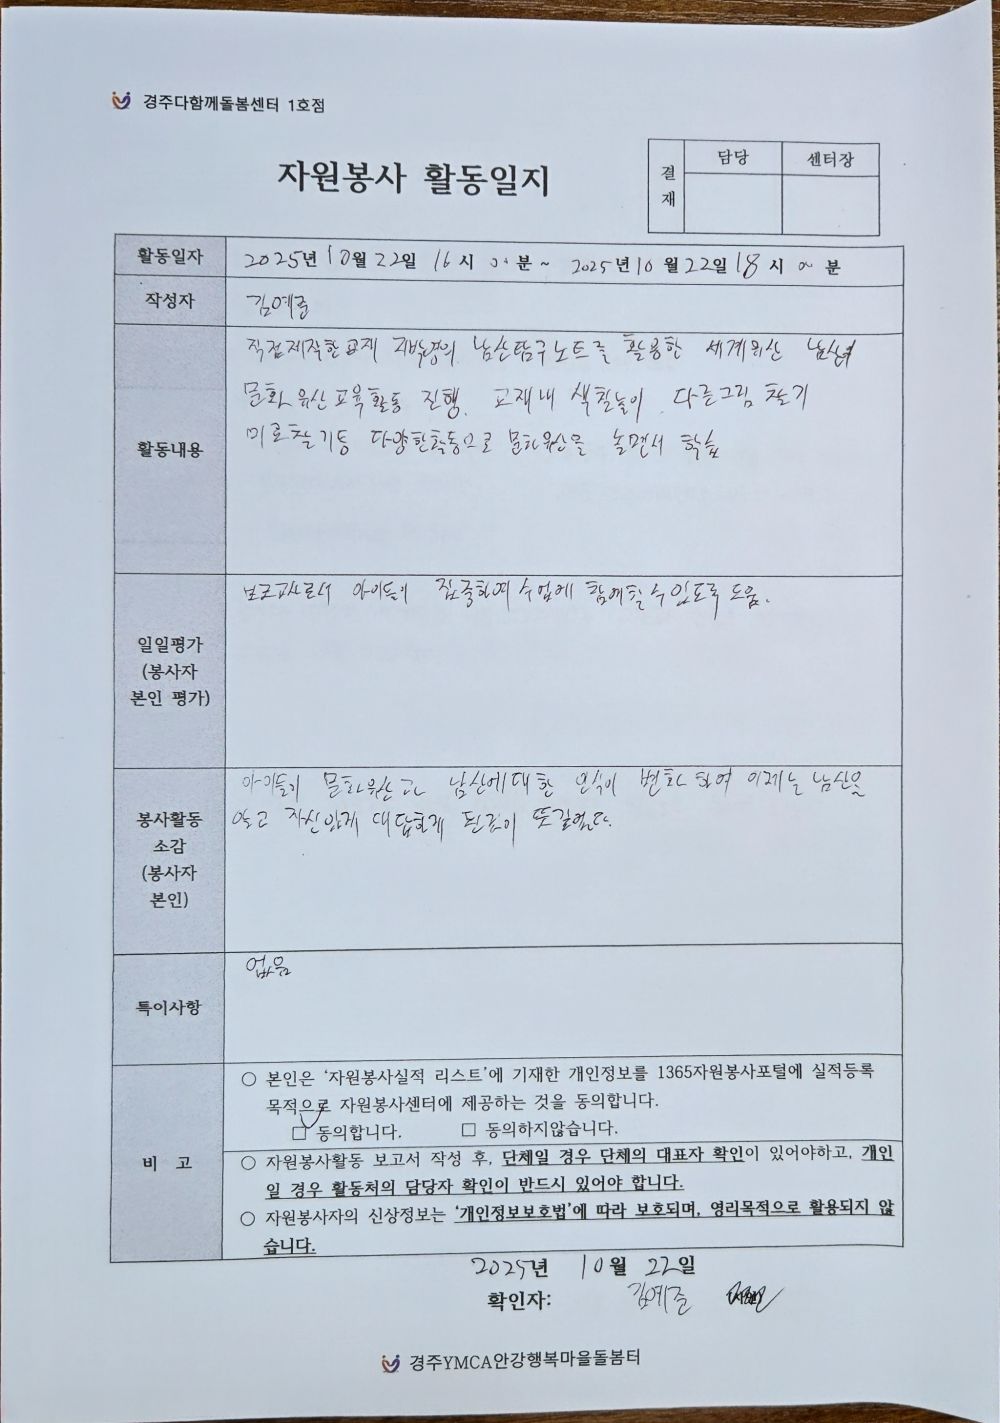 경주다함께돌봄센터 1호점
자원봉사 활동일지
결재
담당
센터장
활동일자
2025년 10월 22일 16시 00분 ~ 2025년 10월 22일 18시 00분
작성자
김예준
활동내용
직접제작한 교재 남산탐구노트를 활용한 세계유산 남산
문화유산교육활동 진행. 교재내 색칠놀이, 다른그림 찾기
미로찾기등 다양한활동으로 문화유산을 놀면서 학습
일일평가
(봉사자
본인 평가)
보조교사로서 아이들이 집중하여 수업에 참여할수있도록 도움.
봉사활동
소감
(봉사자
본인)
아이들이 문화유산과 남산에대한 인식이 변화하여 이제는 남산을
알고 자신있게 대답하게 된점이 뜻깊었다.
특이사항
없음
비 고
○ 본인은 '자원봉사실적 리스트'에 기재한 개인정보를 1365자원봉사포털에 실적등록
목적으로 자원봉사센터에 제공하는 것을 동의합니다.
□ 동의합니다. □ 동의하지않습니다.
○ 자원봉사활동 보고서 작성 후, 단체일 경우 단체의 대표자 확인이 있어야하고, 개인
일 경우 활동처의 담당자 확인이 반드시 있어야 합니다.
○ 자원봉사자의 신상정보는 '개인정보보호법'에 따라 보호되며, 영리목적으로 활용되지 않
습니다.
2025년 10월 22일
확인자: 김예준
경주YMCA안강행복마을돌봄터